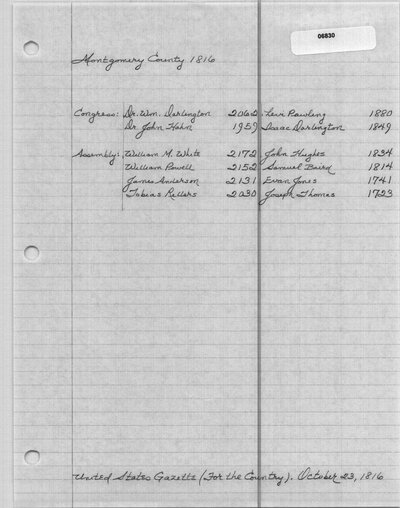 06830
Montgomery County 1816
Congress: Dr. Wm. Darlington 2062 Levi Pawling 1880
Dr. John Hahn 1959 Isaac Darlington 1849
Assembly: William M. White 2172 John Hughes 1834
William Powell 2152 Samuel Baird 1814
James Anderson 2131 Evan Jones 1741
Tobias Sellers 2030 Joseph Thomas 1723
United States Gazette (For the Country). October 23, 1816